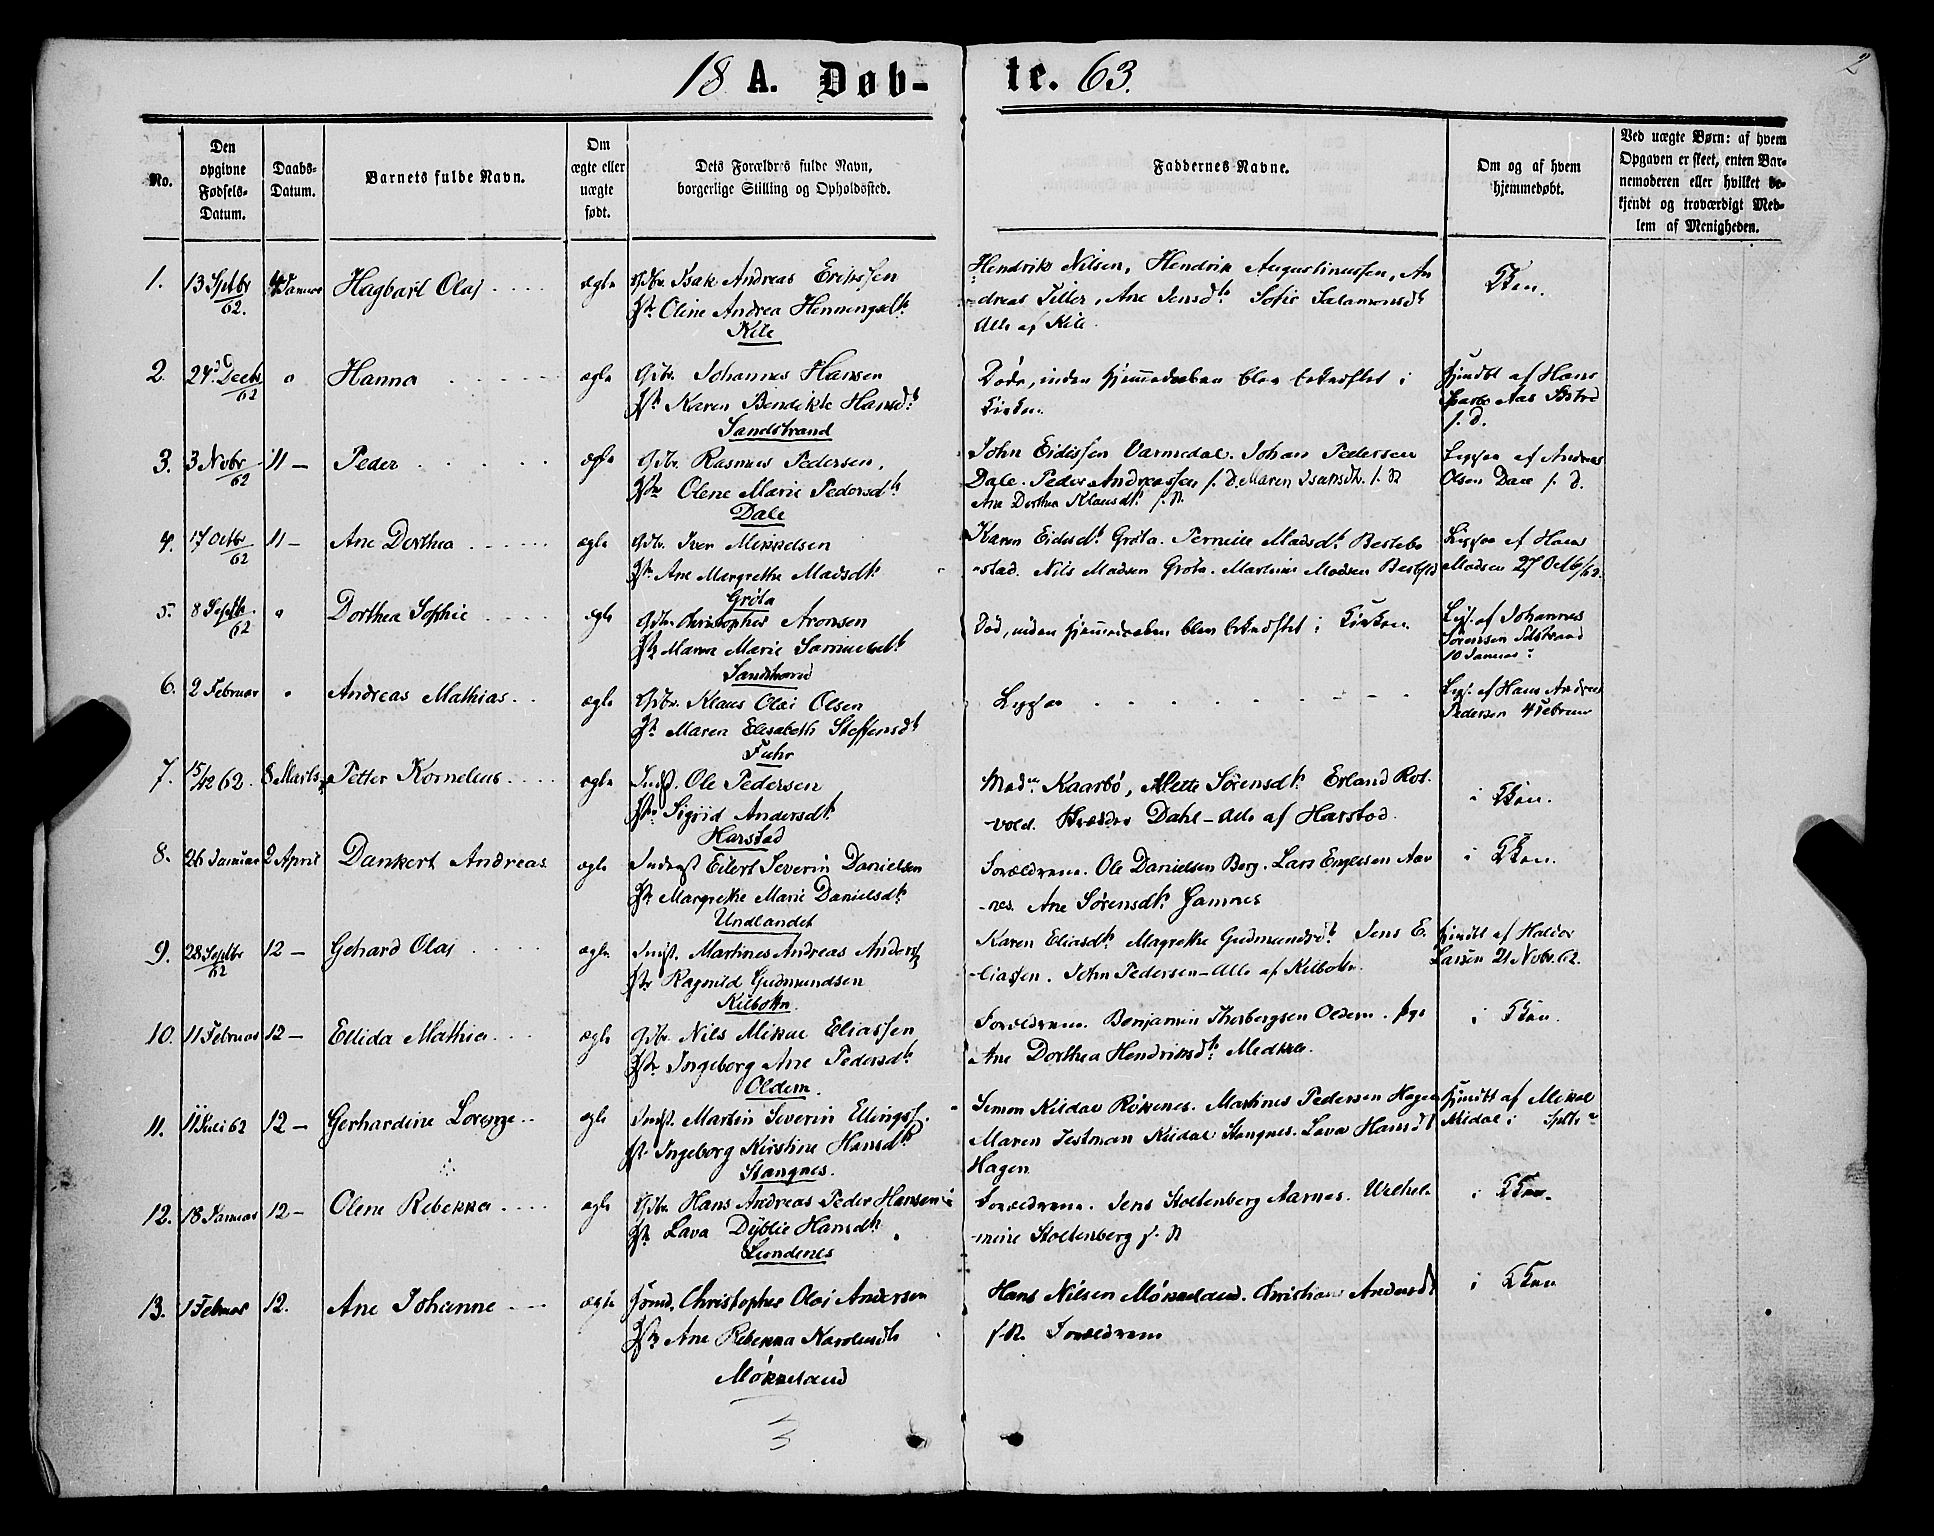 18 A. Døb- te. 63. 2
No.
Den opgivne Fødsels-Datum.
Daabs-Datum.
Barnets fulde Navn.
Om ægte eller uægte født.
Dets Forældres fulde Navn, borgerlige Stilling og Opholdssted.
Faddernes Navne.
Om og af hvem hjemmedøbt.
Ved uægte Børn: af hvem Opgaven er skeet, enten Barnemoderen eller hvilket bekjendt og troværdigt Medlem af Menigheden.
1. 13 Septbr 62. Januar Hagbart Olaj ægte Gbr. Isak Andreas Erikssen Hendrik Nilsen, Hendrik Augustinussen, An
Hst Oline Andrea Henningsdt dreas Tiller, Ane Jensdt Sofie Salamonsdt
Kile Alle af Kile.
2. 27 Decbr 62 " Hanna ægte Gbr. Johannes Hansen Døde, inden Hjemmedaaben blev bekræftet i hjmdbt af Hans
Hst Karen Bendikte Hansdt Kirken. Aas
Sandstrand
3. 3 Novbr 62 11 - Peder ægte Gbr. Rasmus Pedersen, John Eidissen Varmedal. Johan Pedersen af Andreas
Hst Olene Marie Pedersdt Dale. Peder Andreassen f. d. Maren Isaksdt. f. d. Olsen Dale f. d.
Dale Ane Dorthea Klausdt f. d.
4. 17 Octbr 62 11 - Ane Dorthea ægte Gbr. Iver Mikkelsen Karen Eidisdt Grøta. Pernille Madsdt Bestebo af Hans
Hst Ane Margrethe Madsdt -stad. Nils Madsen Grøta. Madsen Madsen 27 Octb/62.
Grøta
5. 8 Septb. 62 " Dorthea Sophie ægte Gbr. Christopher Aronsen Død, inden Hjemmedaaben blev bekræftet i Kirken. af Johannes
Hst Maren Marie Samuelsdt Sørensen
Sandstrand 10 Januar
6. 2 Februar " Andreas Mathias ægte Gbr. Klaus Olai Olsen af Hans Andreas
Hst Maren Elisabeth Steffensdt Pedersen 4 Februar
Fuhr
7. 15/12 62. 8 Marts Petter Kornelius ægte Indst. Ole Pedersen Kaarbø, Mette Sørensdt Erland Rot-
Hst Sigrid Andersdt vold. Dahl - Alle af Harstad. i Kken.
Harstad
8. 26 Januar 2 April Dankert Andreas ægte Eilert Severin Danielsen Forældrene. Ole Danielsen Berg. Lars Engelsen Aar i Kken.
Hst Margrethe Marie Danielsdt -nes. Ane Sørensdt Gamnes
Undlandet
9. 28 Septbr 62 12 - Gehard Olaj ægte Indst. Martines Andreas Anders Karen Eliasdt Magrethe Gudmundsdt Jens E. hjmdbt af Haldor
Hst Ragnild Gudmundsen -liassen. John Pedersen - Alle af Kilbotn. Larsen 21 Novbr. 62.
Kilbotn
10. 11 Februar 12 - Ellida Mathia ægte Gbr. Nils Mikal Eliassen Forældrene. Benjamin Thorbergsen Oldern. i Kken.
Hst Ingeborg Ane Pedersdt Ane Dorthea Hendriksdt
Oldern.
11. 11 Juli 62 12 - Gerhardine Lorenze ægte Indst. Martin Severin Ellingss. Simon Kildal Røkenes. Martines Pedersen Hagen hjmdbt af Mikal
Hst Ingeborg Kirstine Hansdt Maren Testman Kildal Stangnes. Lava Hansdt Midal i Septbr
Stangnes. Hagen
12. 18 Januar 12 - Olene Rebekka ægte Gbr. Hans Andreas Peder Hansen Forældrene. Jens Stoltenberg Aarnes. Wilhel- i Kken.
Hst Lava Dyblie Hansdt -mine Stoltenberg f. d.
Lundenes
13. 1 Februar 12. Ane Johanne ægte Christopher Olai Andersen Hans Nilsen Møkkeland. Christiane Andersdt i Kken
Hst Ane Rebekka Karolusdt f. d. Forældrene
Møkkeland